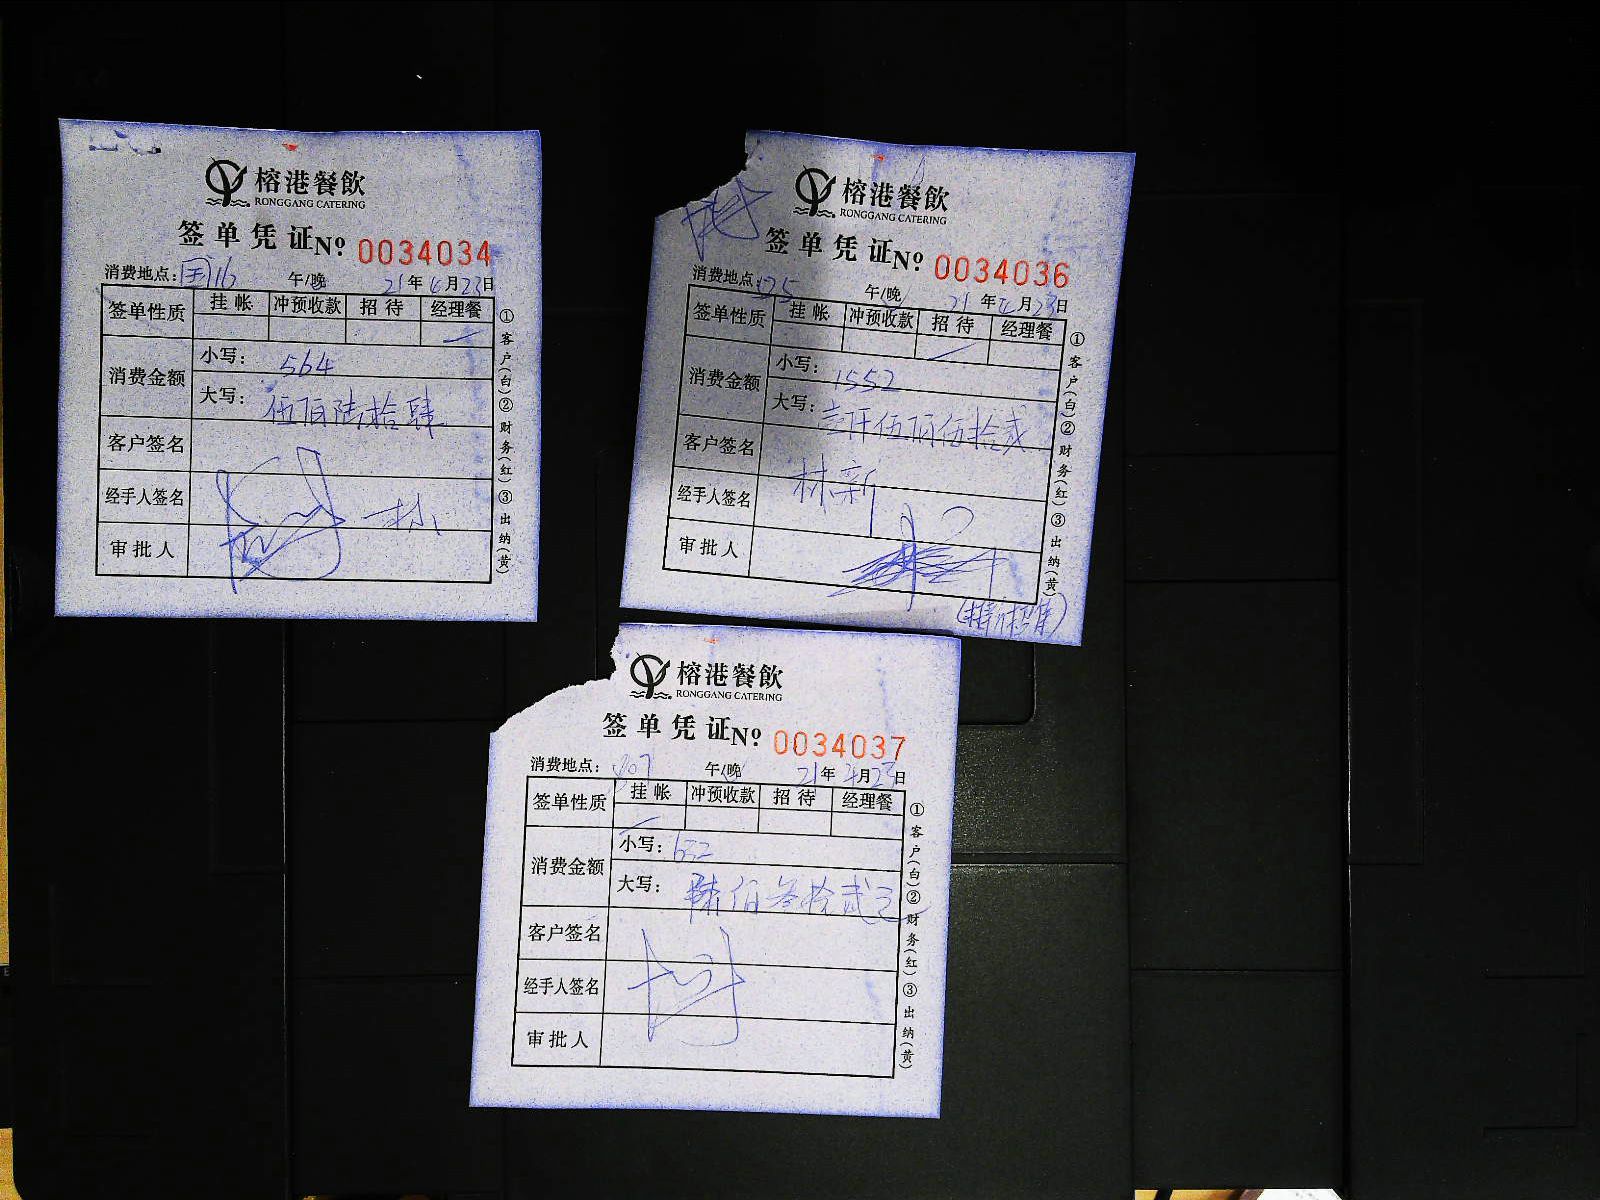 榕港餐飲
RONGGANG CATERING
签单凭证 Nº 0034034
消费地点: 116 午/晚 21年4月23日
签单性质 挂帐 冲预收款 招待 经理餐
消费金额 小写: 564
大写: 伍佰陆拾肆
客户签名
经手人签名
审批人
①客户(白)②财务(红)③出纳(黄)
榕港餐飲
RONGGANG CATERING
签单凭证 Nº 0034036
消费地点: 午/晚 21年4月23日
签单性质 挂帐 冲预收款 招待 经理餐
消费金额 小写: 1552
大写: 壹仟伍佰伍拾贰
客户签名
经手人签名 林新
审批人
①客户(白)②财务(红)③出纳(黄)
榕港餐飲
RONGGANG CATERING
签单凭证 Nº 0034037
消费地点: 午/晚 21年4月23日
签单性质 挂帐 冲预收款 招待 经理餐
消费金额 小写: 632
大写: 陆佰叁拾贰元
客户签名
经手人签名
审批人
①客户(白)②财务(红)③出纳(黄)